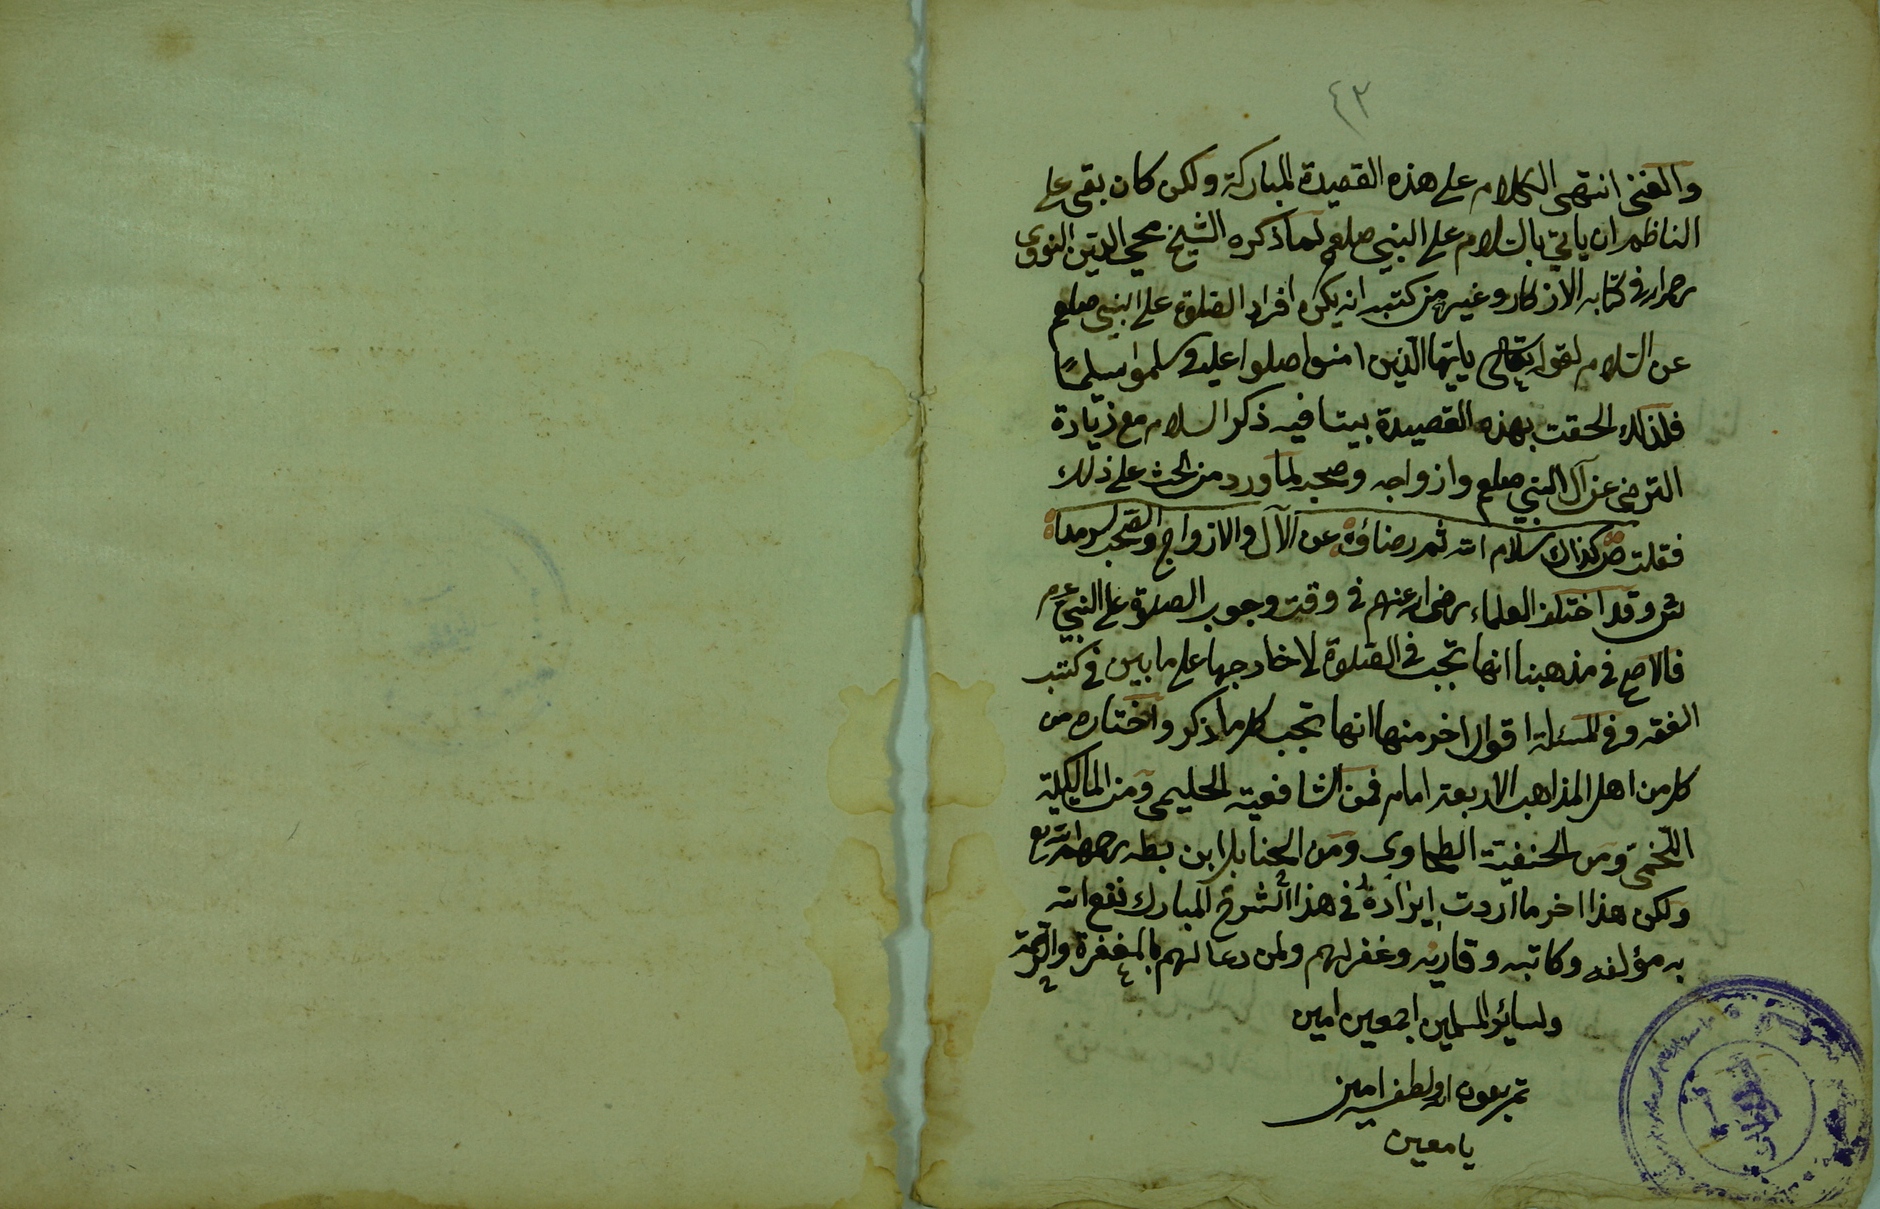 ٤٣
والغنى انتهى الكلام على هذه القصيدة المباركة ولكن كان بقى على
الناظم ان ياتي بالسلام على النبي صلعم لما ذكره الشيخ محيي الدين النووى
في كتابه الاذكار وغيره من كتبه انه يكره افراد الصلوة على النبي صلعم
عن السلام لقوله تعالى يايها الذين امنوا صلوا عليه وسلموا تسليمًا
فلذلك الحقت بهذه القصيدة بيتا فيه ذكر السلام مع زيادة
الترضى عن آل النبي صلعم وازواجه وصحبه لما ورد من الحث على ذلك
فقلت ص كذاك سلام الله ثم رضاؤه عن الآل والازواج والصحب سرمدا
ش وقد اختلف العلماء رضى الله عنهم في وقت وجوب الصلوة على النبي عم
فالاصح في مذهبنا انها تجب في الصلوة لا خارجها على ما بين في كتب
الفقه وفي المسئلة اقوال اخر منها انها تجب كلما ذكر واختاره من
كل من اهل المذاهب الاربعة امام فمن الشافعية الحليمي ومن المالكية
اللخمى ومن الحنفية الطحاوى ومن الحنابلة ابن بطه رحمهم الله تع
ولكن هذا اخر ما اردت ايراده في هذا الشرح المبارك فنفع الله
به مؤلفه وكاتبه وقاريه وغفر لهم ولمن دعا لهم بالمغفرة والرحمة
ولسائر المسلمين اجمعين امين
تم بعون الله ولطفه امين
يا معين